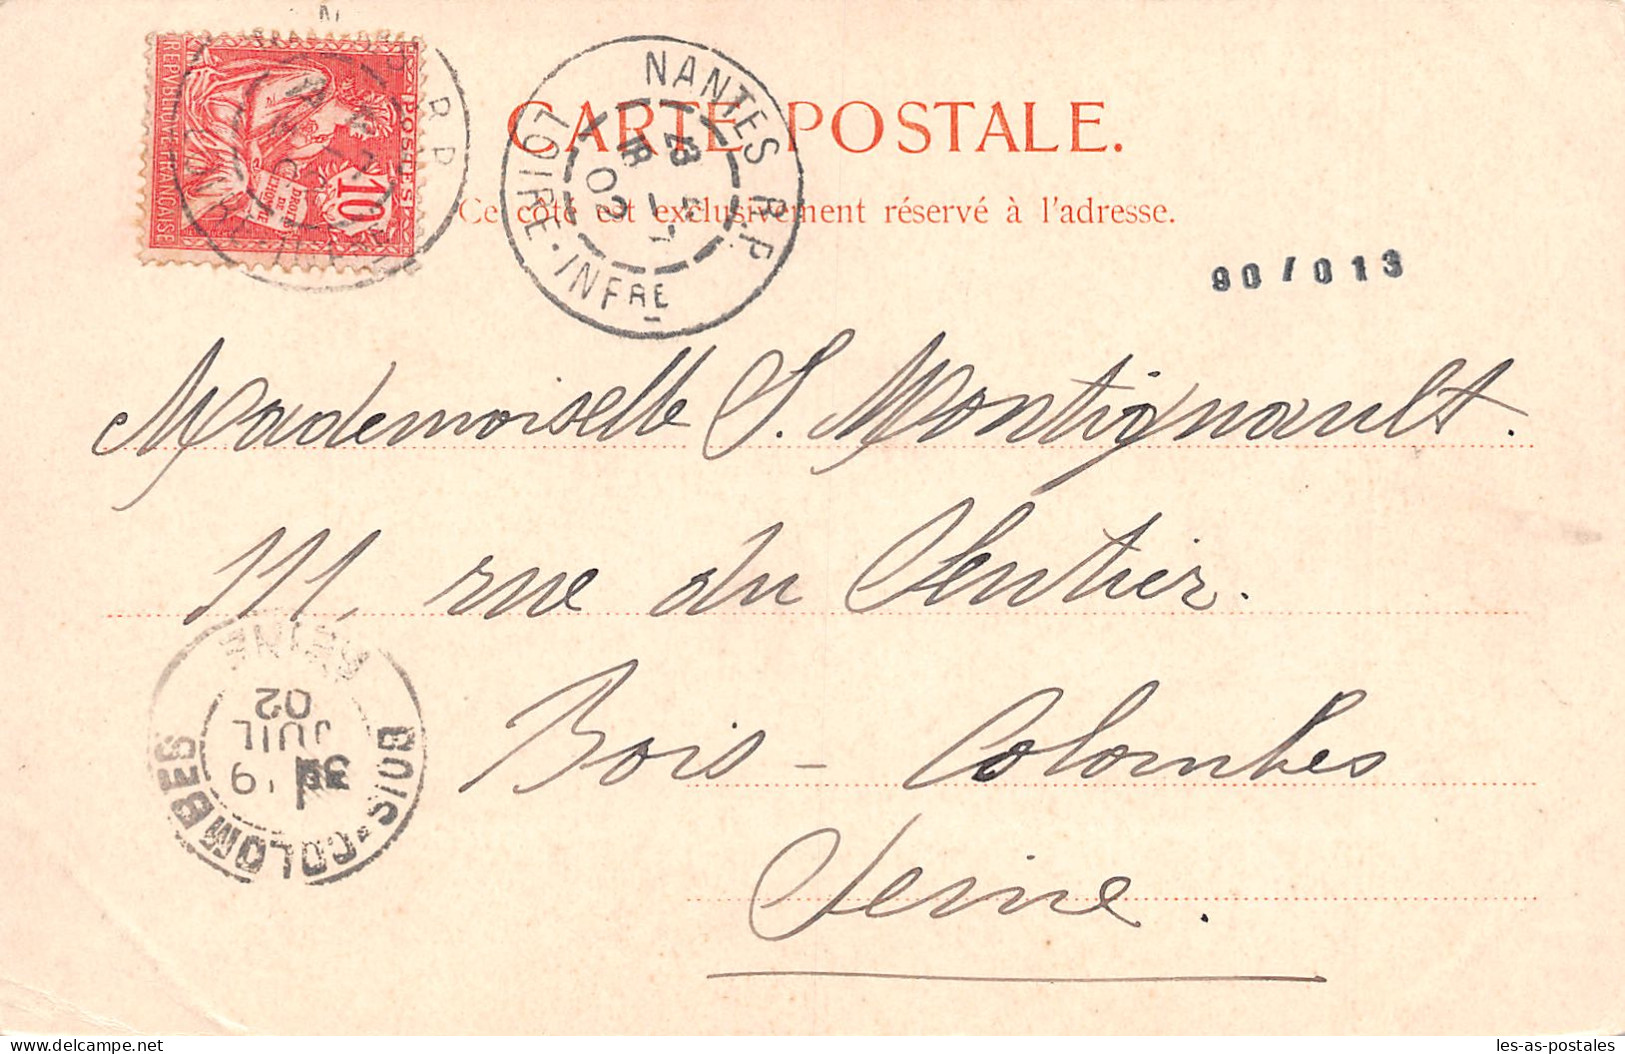 POSTES
10
REPVBLIQVE FRANÇAISE
DROITS DE L'HOMME
NANTES R.P.
LOIRE-INFRE
02
CARTE POSTALE.
Ce côté est exclusivement réservé à l'adresse.
90/013
Mademoiselle S. Montignault.
111, rue du Sentier.
Bois-Colombes
Seine.
BOIS-COLOMBES
SEINE
JUIL
02
delcampe.net
les-as-postales